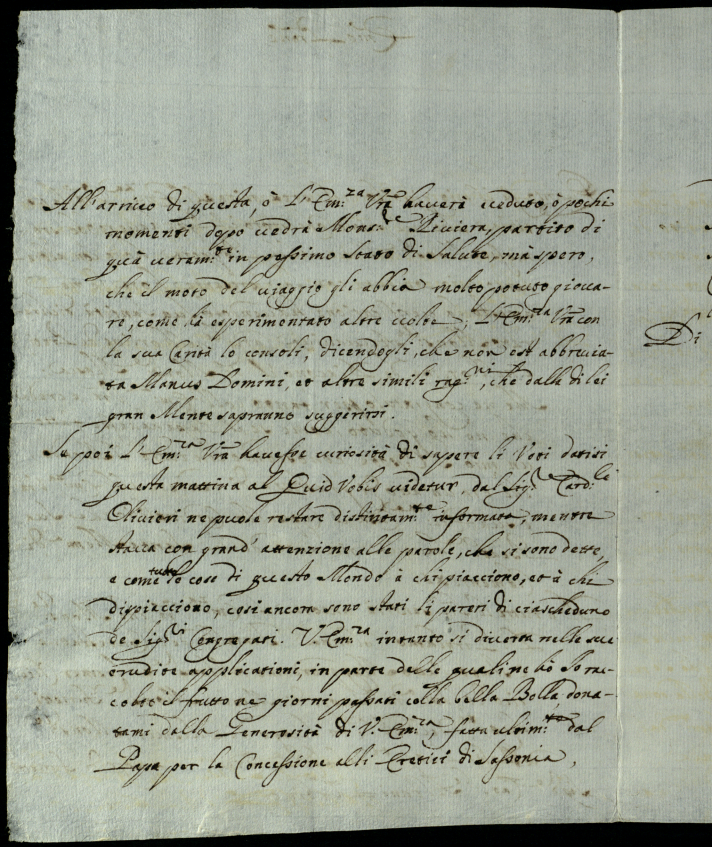 All'arrivo di questa, ò l'Em:za Vra haverà veduto, ò pochi
momenti dopo vedrà Mons:re Riviera, partito di
quà veram:te in pessimo stato di Salute, mà spero,
che il moto del viaggio gli abbia molto potuto giova-
re, come hà esperimentato altre volte; l'Em:za Vra con
la sua Carità lo consoli, dicendogli, che non est abbrevia-
ta Manus Domini, et altre simili rag:ni, che dalla di lei
gran Mente sapranno suggerirsi.
Se poi l'Em:za Vra havesse curiosità di sapere li Voti datisi
questa mattina al Quid Vobis videtur, dal Sig:re Card:le
Olivieri ne puole restare distintam:te informata, mentre
stava con grand' attenzione alle parole, che si sono dette,
e come tutte le cose di questo Mondo à chi piacciono, et à chi
dispiacciono, così ancora sono stati li pareri di ciascheduno
de Sig:ri Congregati. V. Em:za intanto si diverta nelle sue
erudite applicationi, in parte delle quali ne hò Io rac-
colto il frutto ne giorni passati colla bella Bolla dona-
tami dalla Generosità di V. Em:za, fatta ultim:te dal
Papa per la Concessione alli Eretici di Sassonia,
Di